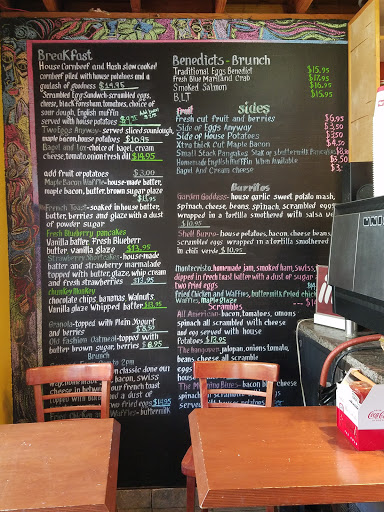 Breakfast
House Cornbeef and Hash slow cooked
cornbeef piled with house potatoes and a
goulash of goodness $14.95
Scrambled Egg Sandwich-scrambled eggs,
cheese, black forest ham, tomatoes, choice of
sour dough, English muffin
served with house potatoes $9.95
Two Eggs Anyway- served sliced sourdough,
maple bacon, house potatoes $10.95
Bagel and Lox-choice of bagel, cream
cheese, tomato, onion fresh dill $14.95
add fruit or potatoes $3.00
Maple Bacon Waffle-house-made batter,
maple bacon, butter, brown sugar glaze
$11.95
French Toast-soaked in house batter,
butter, berries and glaze with a dust
of powder sugar
Fresh Blueberry pancakes
Vanilla batter, Fresh Blueberry
butter, vanilla glaze $13.95
Strawberry Shortcakes-house-made
batter and strawberry marmalade
topped with butter, glaze, whip cream
and fresh strawberries $13.95
Chunkey Monkey
chocolate chips, bananas, Walnuts,
Vanilla glaze Whipped butter $13.95
Granola-topped with Plain Yogurt
and berries $8.50
Old Fashion Oatmeal-topped with
butter brown sugar, berries $6.95
Brunch
classic done out
bacon, swiss
our french toast
and a dust of
two fried eggs $14.95
Waffles- buttermilk
Benedicts - Brunch
Traditional Eggs Benedict $15.95
Fresh Blue Maryland Crab $17.95
Smoked Salmon $16.95
B.L.T $15.95
sides
Fresh cut fruit and berries $6.95
Side of Eggs Anyway $3.50
Side of House Potatoes $3.50
Xtra thick Cut Maple Bacon $4.50
Small Stack Pancakes Stak of 2 buttermilk Pancakes $8.
Homemade English Muffin When Available $3.50
Bagel And Cream cheese $3.
Burritos
Garden Goddess- house garlic sweet potato mash,
spinach, cheese, beans, spinach, scrambled eggs
wrapped in a tortilla smothered with salsa
$10.95
Shell Burro-house potatoes, bacon, cheese, beans,
scrambled eggs wrapped in a tortilla smothered
in chili verde $10.95
Montecristo, homemade jam, smoked ham, swiss,
dipped in french toast batter with a dust of sugar
two fried eggs
Fried Chicken and Waffles, buttermilk fried chicken
Waffles, Maple glaze
Scrambles
All American- bacon, tomatoes, onions
spinach all scrambled with cheese
and egg served with house
Potatoes $13.95
The Hangover, jalapeno, onions, tomato,
beans, cheese all scramble
bacon bleu cheese
spinach all scramble
Coca-Cola